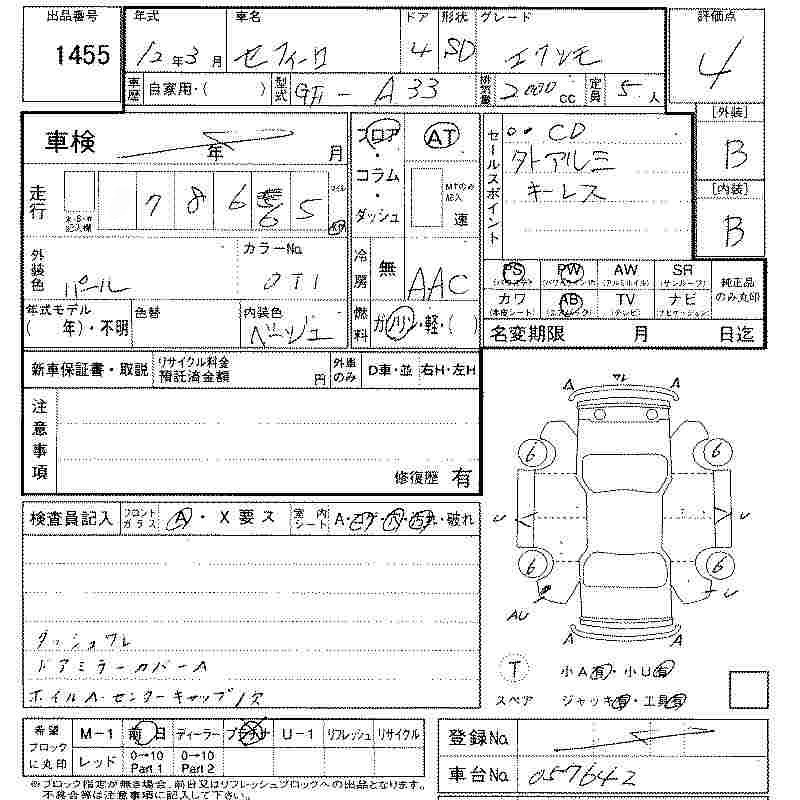 出品番号 年式 車名 ドア 形状 グレード 評価点
1455 12年3月 セフィーロ 4 SD エクシモ 4
車歴 自家用・( ) 型式 GF - A33 排気量 2000cc 定員 5人
[外装]
B
[内装]
B
車検 年 月
走行 ※・S・※記入欄 7 8 6 6 5 マイル Km
フロア・コラム・ダッシュ
AT
MTのみ記入 速
セールスポイント
CD
外アルミ
キーレス
外装色 パール カラーNo. QT1
冷房 無 AAC
年式モデル ( 年)・不明 色替 内装色 ベージュ
燃料 ガソリン・軽・( )
PS (パワステ) PW (パワーウインド) AW (アルミホイル) SR (サンルーフ) 純正品のみ丸印
カワ (本皮シート) AB (エアバック) TV (テレビ) ナビ (ナビゲーション)
名変期限 月 日迄
新車保証書・取説 リサイクル料金預託済金額 円 外車のみ D車・並 右H・左H
注意事項
修復歴 有
検査員記入 フロントガラス A・X要ス 室内シート A・コゲ・穴・汚れ・破れ
A A
6 6
U U
6 6
AU U
A A
ダッシュワレ
ドアミラーカバーA
ホイルA・センターキャップ1欠
T 小A有・小U有
スペア ジャッキ有・工具有
希望ブロックに丸印 M-1 前日 ディーラー プラチナ U-1 リフレッシュ リサイクル
レッド 0→10 Part 1 0→10 Part 2
※ブロック指定が無き場合、前日又はリフレッシュブロックへの出品となります。
不具合等は注意事項に記入して下さい。
登録No.
車台No. 057642